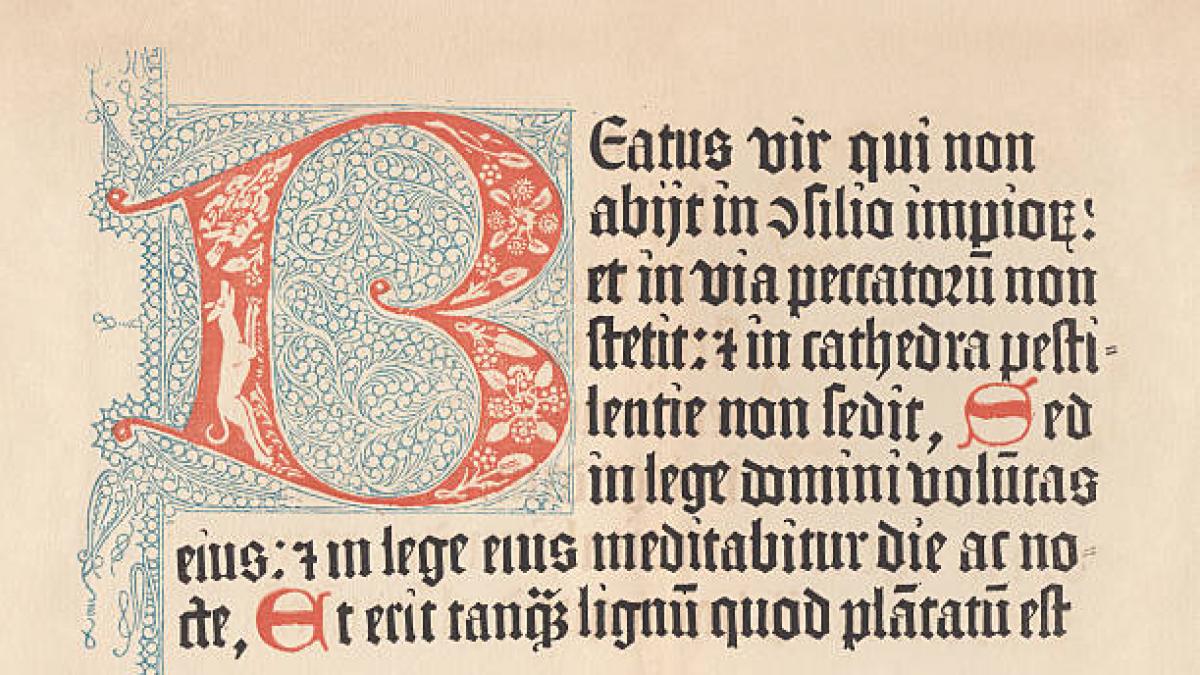 BEatus vir qui non
abijt in ↄſilio impioꝝ:
et in via peccatoꝛū non
ſtetit: ⁊ in cathedra peſti⸗
lentie non ſedit, Sed
in lege domini volūtas
eius: ⁊ in lege eius meditabitur die ac no⸗
cte, Et erit tanꝙ̄ lignū quod plātatū eſt